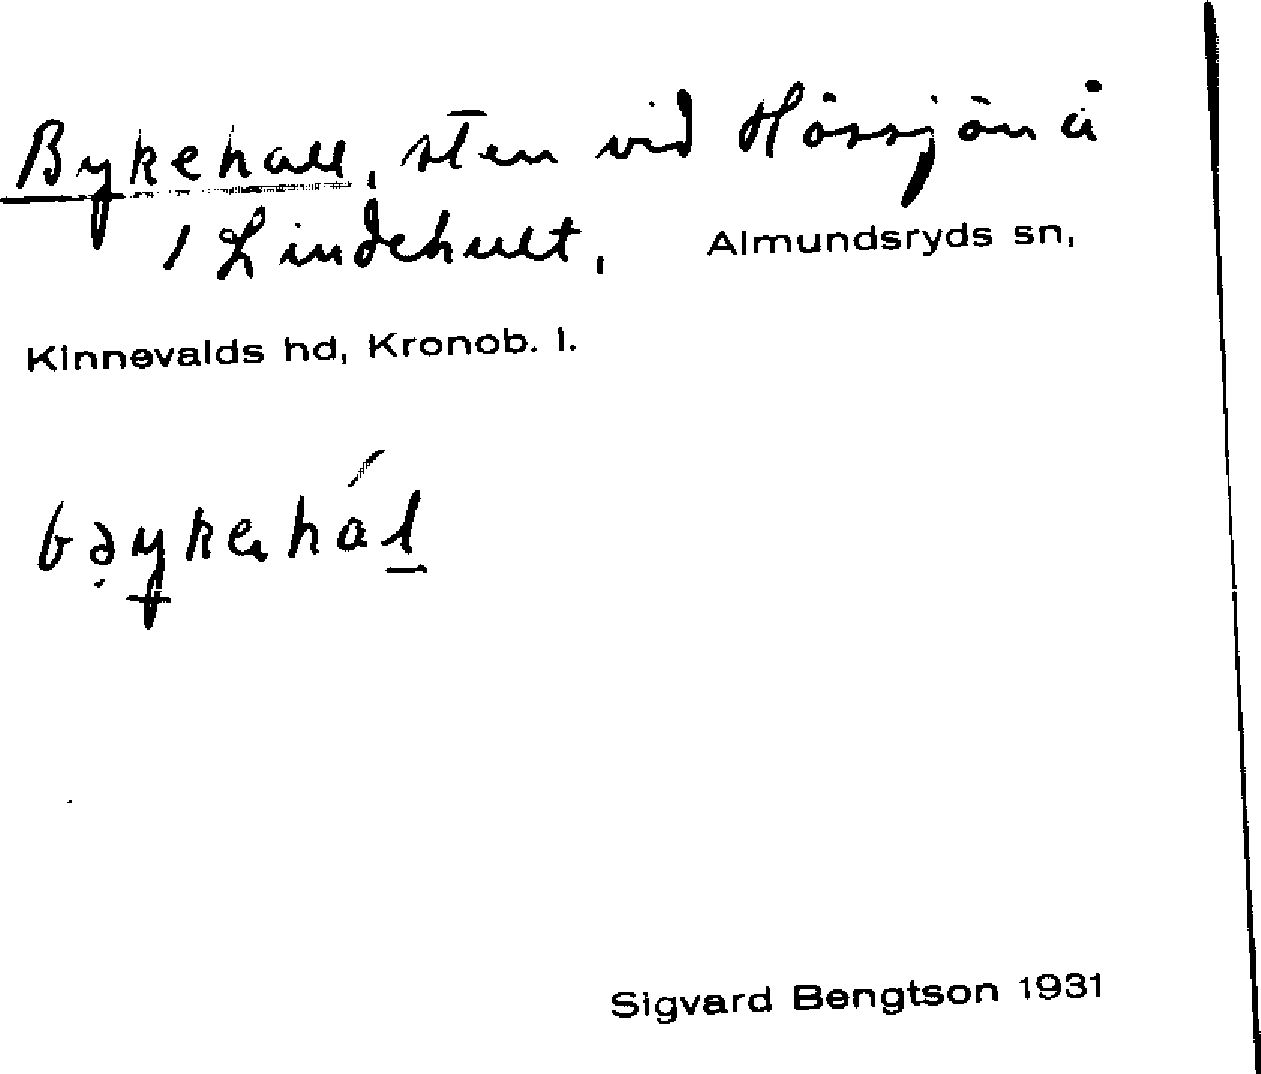 Bykehall, sten vid Hössjön å
/ Lindehult, Almundsryds sn,
Kinnevalds hd, Kronob. l.
Sigvard Bengtson 1931